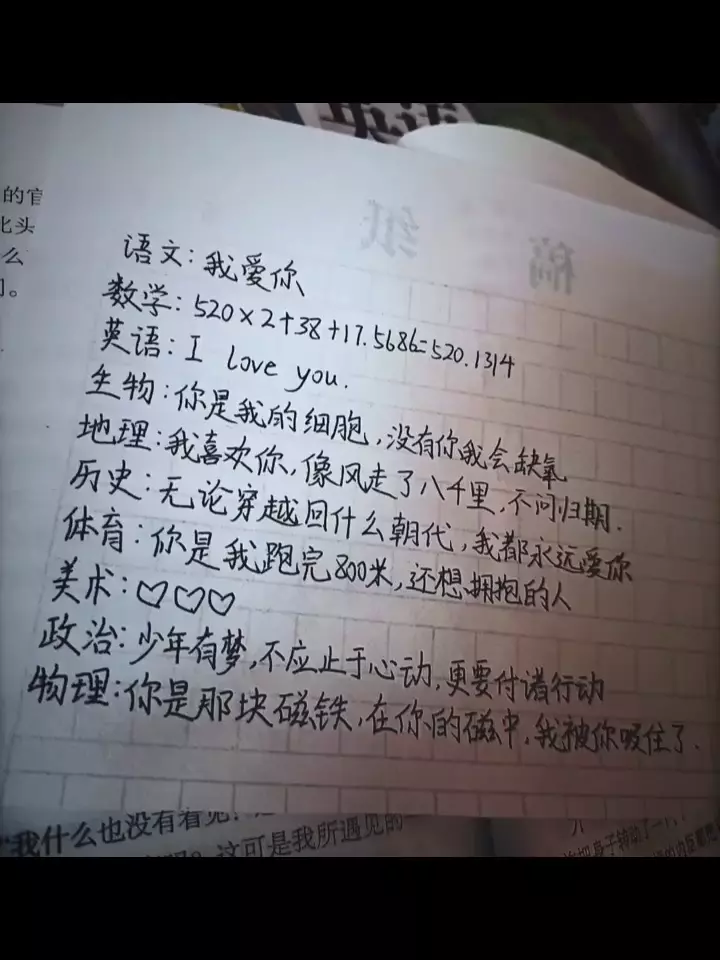 稿 纸
的官
北头
么
语文：我爱你
数学：520×2+38+17.5686=520.1314
英语：I love you.
生物：你是我的细胞，没有你我会缺氧
地理：我喜欢你，像风走了八千里，不问归期.
历史：无论穿越回什么朝代，我都永远爱你
体育：你是我跑完800米，还想拥抱的人
美术：♡♡♡
政治：少年有梦，不应止于心动，更要付诸行动
物理：你是那块磁铁，在你的磁中，我被你吸住了.
"我什么也没有看见
这可是我所遇见的